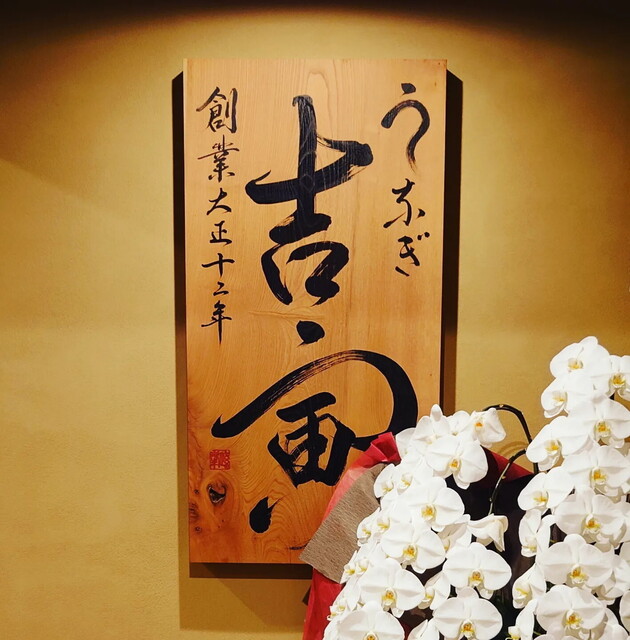 うなぎ
吉寅
創業大正十二年